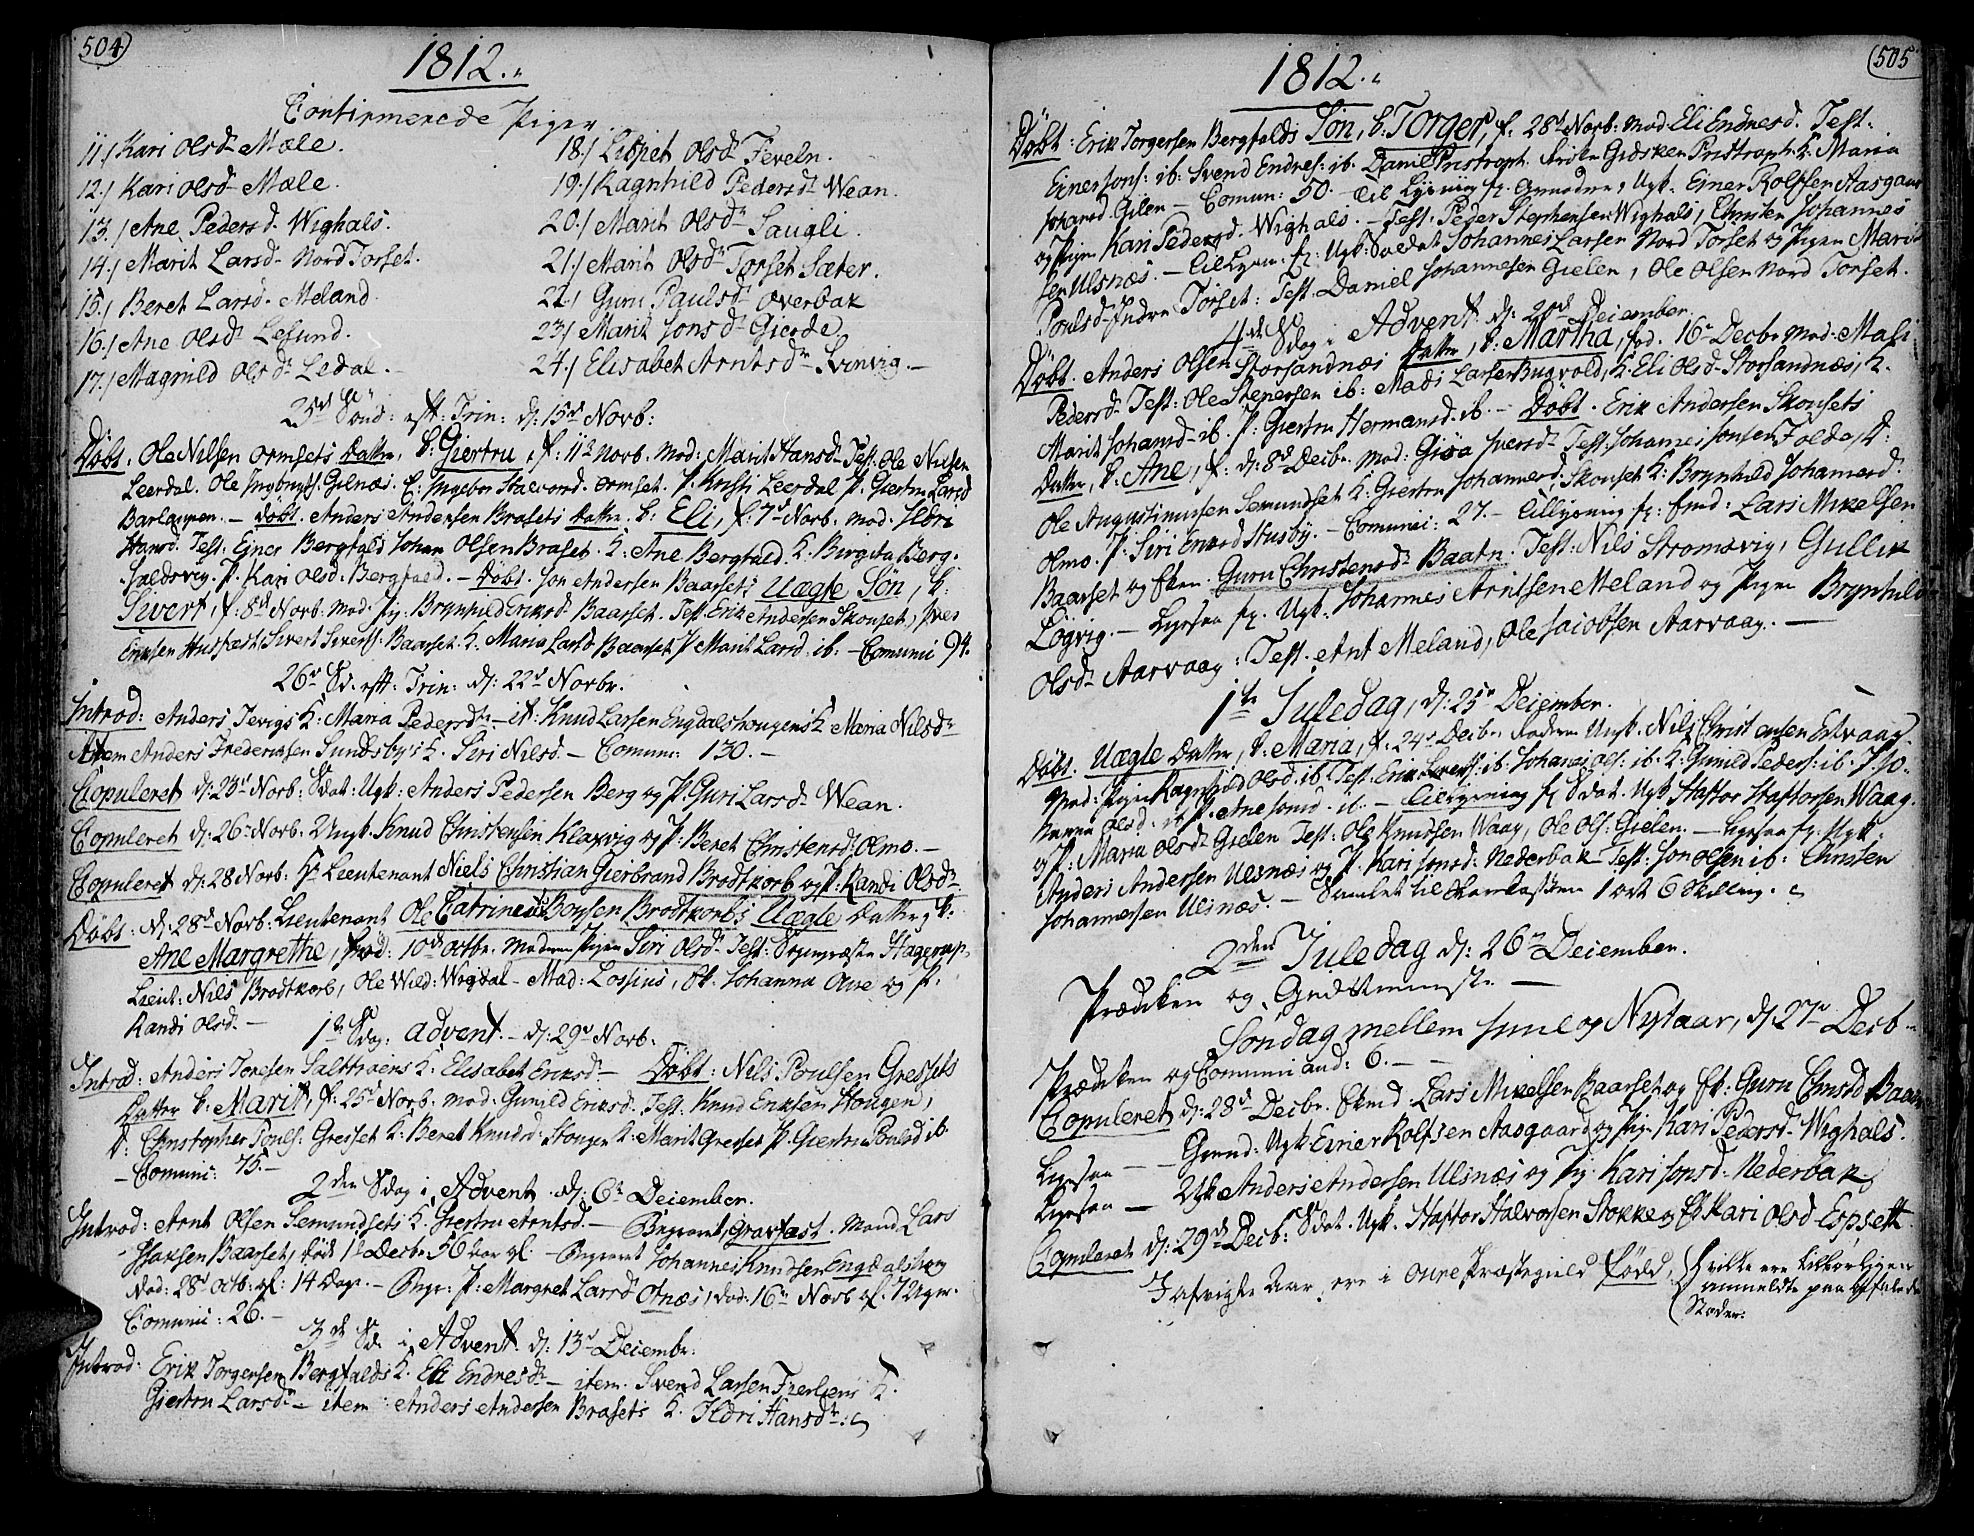 504
1812.
Confirmerede Piger
11./ Kari Olsdr Mæle.
12./ Kari Olsdr Mæle.
13./ Ane Pedersd. Wighals.
14./ Marit Larsd. Nord Torset.
15./ Beret Larsd. Meland.
16./ Ane Olsdr Lesund.
17./ Magnild Olsdr Ledal.
18./ Lispet Olsdr Feveln.
19./ Ragnhild Pedersdr Wean.
20./ Marit Olsdr Saugli.
21./ Marit Olsdr Torset Sæter.
22./ Guru Paulsdr Overbak
23./ Marit Jonsdr Gierde
24./ Elisabet Arntsdr Svinvig.
25de Sønd: eft: Trin: d: 15de Norb:
Døbt. Ole Nilsen Ormsets Datter, b: Giertru, f: 11te Norb. Mod: Marit Hansd. Test: Ole Nilsen
Leerdal. Ole Gilnæs. K: Ingebor Ormset. P. Leerdal P. Giertru Larsd
Døbt. Anders Andersen Brasets Datter. b: Eli, f: 7de Norb. Mod. Ildri
Hansd. Test: Einer Bergfald Johan Olsen Braset. K: Ane Bergfald. K. Birgita Berg
P. Kari Olsd. Bergfald. — Døbt. Jon Andersen Baarsets Uægte Søn, b:
Sivert, f. 8de Norb. Mod. Pig: Brynhild Eriksdr Baarset. Test: Erik Andersen Skonset,
Eriksen Husfast Sivert Baarset K: Maria Larsd Baarset P Marit Larsd: ib: — Comuni 94.
26de Sd. eft: Trin: d: 22de Norbr.
Introd: Anders Tevigs K: Maria Pedersdr — it: Knud Larsen Engdalshougens K Maria Nilsdr
Item Anders Frederiksen Sundsby's K. Siri Nilsd. — Comun: 130. —
Copuleret d: 23de Norb: Sdat: Ugk: Anders Pedersen Berg og P: Guri Larsdr Wean.
Copuleret d: 26te Norb: Ungk. Knud Christensen Klaxvig og P: Beret Christensd: Olmo. —
Copuleret d: 28 Norb: Hr Lieutenant Niels Christian Gierbrand Brodtkorb og P: Randi Olsdr
Døbt: d: 28de Norb: Lieutenant Ole Catrinus Boysen Brodtkorbs Uægte Datter, b:
Ane Margrethe, fød: 10de Octbr. Moderen Pigen Siri Olsdr Test: Sognepræsten Hagerup,
Lieut: Nils Brodtkorb, Ole Wild: Wogdal — Mad: Lossius, Johanna Aure og P.
Randi Olsdr —
1ste Sdag: Advent. — d: 29de Norb:
Introd: Anders Tonesen Salthoens K. Elisabet Eriksdr — Døbt: Nils Poulsen Gresets
Datter b: Marit, f: 25de Norb: Mod: Gunild Eriksd. Test. Knud Eriksen Hougen,
Christopher Pouls: Gresset K: Beret Knudsd: K: Marit Gresset P: Giertru Poulsd ib
— Comuni: 75. —
2den Sdag i Advent. d: 6te December.
Introd: Arnt Olsen Semundsets K: Giertru Arntsd. — Begravet, Mand Lars
Isaksen Baarset, Decbr 56 Aar gl. — Begravet Johannes Knudsen Engdalshoug
død: 28de Octb: gl: 14 Dage. — Begr: P: Margret Larsdr Otnæs, død: 16de Norb gl: 7 Uger.
Comuni: 26. —
3de Sd. i Advent. d: 13de Decembr:
Introd: Erik Torgersen Bergfalds K: Eli Endresdr — item: Svend Larsen K.
Giertru Larsdr — item: Anders Andersen Brasets K. Ildri Hansdr:
505
1812.
Døbt: Erik Torgersen Bergfalds Søn, b: Torger, f: 28de Norb: Mod Eli Endresd. Test:
Einer Jons: ib: Svend Endres: ib. Daniel Pristroph. Gidsken Pristroph. K: Maria
Johansd. Gilen — Comun: 50. — Til Lysning f: Grenader, Ugk: Einer Rolfsen Aasgaard
og Pigen Kari Pedersd. Wighals. — Test, Peder Stephensen Wighals, Christen Johannes
sen Ulsnæs. — Til Lysn: f: Ugk: Soldat Johannes Larsen Nord Torset og Pigen Marit
Poulsd Indre Torset: Test. Daniel Johannesen Gielen, Ole Olsen Nord Torset.
4de Sdag i Advent d: 20de December.
Døbt. Anders Olsen Storsandnæs Datter, b: Martha, fød. 16de Decbr Mod: Mali
Pedersdr Test: Ole Stenersen ib: Mads Larsen Bugvold, K. Eli Olsd. Storsandnæs, K.
Marit Johansd ib. P: Giertru Hermansd. ib. — Døbt. Erik Andersen Skonsets
Datter, b. Ane, f: d: 8de Decbr. Mod: Gisa Iversdr Test: Johannes Jonsen Folde,
Ole Augustinussen Semundset K: Giertru Johannesd. Skonset K: Brynhild Johannesd.
Olmo. P: Siri Husby. — Comuni: 27. — Til Lysning f: Lars Mikelsen
Baarset og Enken Guru Christensdr Baatn. Test: Nils Stromsvig, Gullik
Løgvig. — Ligesaa f. Ugk: Johannes Arntsen Meland og Pigen Brynhild
Olsdr Aarvaag: Test. Ant Meland, Ole Jacobsen Aarvaag. —
1ste Juledag, d: 25de December.
Døbt. Uægte Datter, b. Maria, f: 24de Decbr Faderen Ungk: Nils Christensen Estvaag
Mod: Pigen Ragnhild Olsd. ib. Test: Erik Sivers: ib. Johannes Ols: ib. K: Gunild Peders: ib. P. Jo-
hanna Olsd. ib P. Ane Jonsd. ib. — Til Lysning f Sdat. Ugk Haftor Haftorsen Waag.
og P: Maria Olsdr Gielen Test: Ole Knudsen Waag, Ole Ols: Gielen. — Ligesaa f: Ugk:
Anders Andersen Ulsnæs og P. Kari Jonsd: Nederbak Test: Jon Olsen ib: Christen
Johannessen Ulsnæs. — Samlet til 1 ort 6 Skilling.
2den Juledag d: 26de December.
Prædiken og Gudstieneste —
Søndag mellem Juul og Nytaar, d: 27de Decb
Prædiken og Communicand: 6. —
Copuleret d: 28de Decbr. Lars Mikelsen Baarset og Guru Christd Baatn
Ligesaa — — Grend: Ugk: Einer Rolfsen Aasgaard og Pig: Kari Pedersd Wighals.
Ligesaa — Ugk Anders Andersen Ulsnæs og Pig Kari Jonsd. Nederbak
Copuleret d: 29de Decb: Sdat. Ugk. Haftor Halvorsen Stokke og Kari Olsd Espsett
I afvigte Aar ere i Oure Præstegield Fødd, hvilke ere tilbørligen
anmeldte paa befalede
Steder.